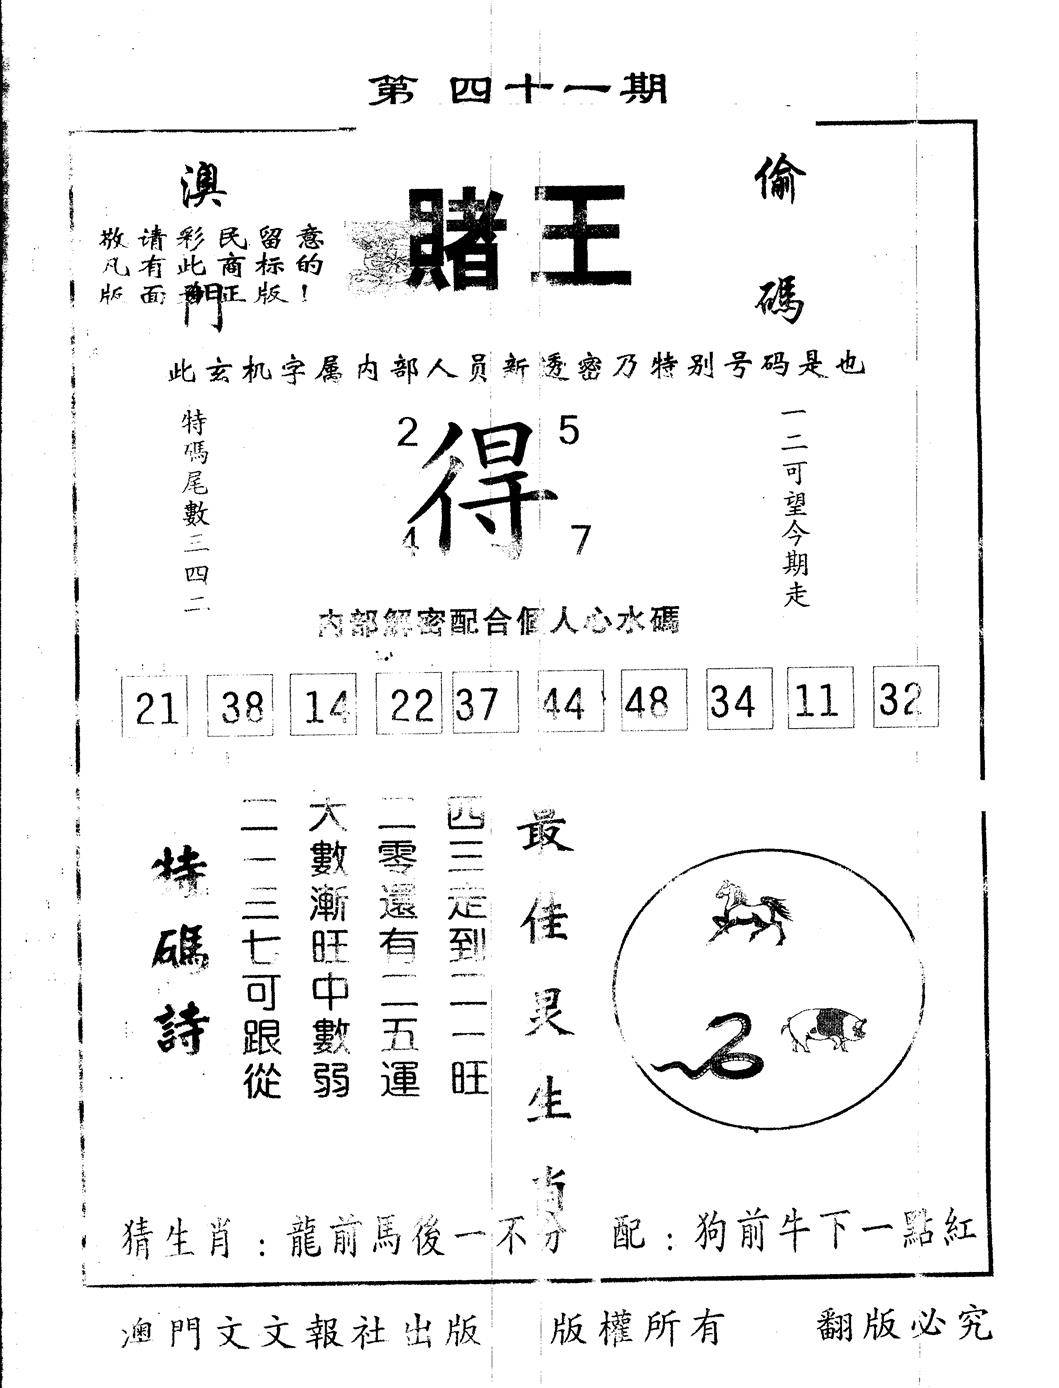 第四十一期
澳門
賭王
偷碼
敬请彩民留意
凡有此商标的
版面为正版！
此玄机字属内部人员新透密乃特别号码是也
特碼尾數三四二
2 5
得
4 7
一二可望今期走
内部解密配合個人心水碼
21 38 14 22 37 44 48 34 11 32
特碼詩
二一三七可跟從
大數漸旺中數弱
二零還有二五運
四三走到二一旺
最佳灵生肖
猜生肖：龍前馬後一不分 配：狗前牛下一點紅
澳門文文報社出版 版權所有 翻版必究